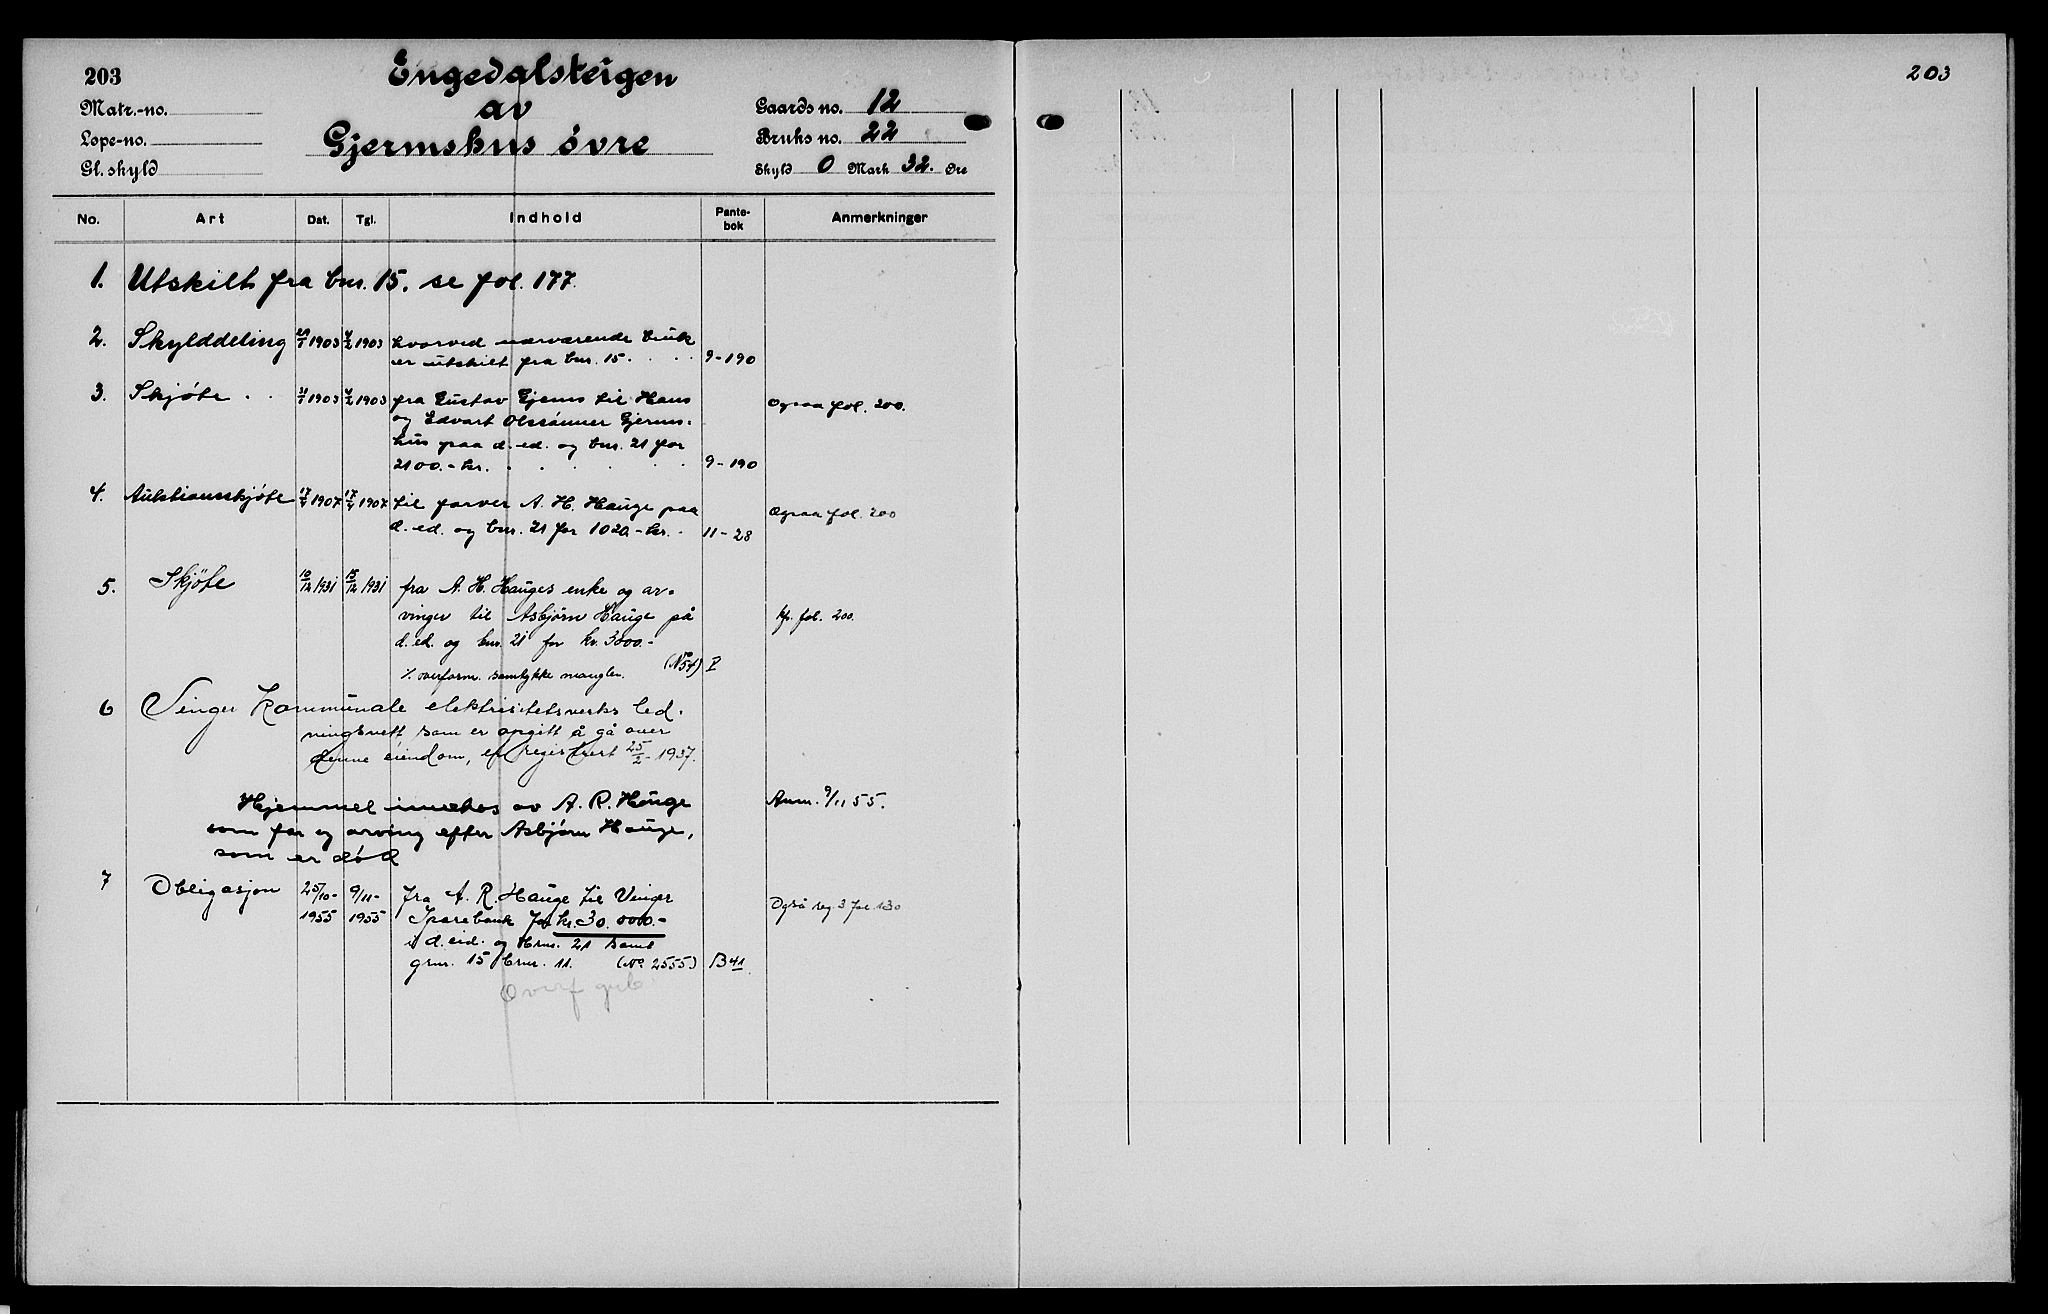 203
Engedalsteigen
av
Gjermshus øvre
Matr.-no.
Løpe-no.
Gl. skyld
Gaards no. 12
Bruks no. 22
Skyld 0 Mark 32. Øre
203
No. Art Dat. Tgl. Indhold Pante-bok Anmerkninger
1. Utskilt fra bnr. 15. se fol. 177.
2. Skylddeling 1903 4/2 1903 hvorved nærværende bruk
er utskilt fra bnr. 15. . . . 9-190
3. Skjøte . . 1903 4/2 1903 fra Gustav Gjems til Hans Ogsaa fol. 200.
og Edvart Olssønner Gjerms-
hus paa d. ed. og bnr. 21 for
2100.- kr. . . . . . 9-190
4. Auktionsskjøte 17/4 1907 17/4 1907 til farver A. H. Hauge paa Ogsaa fol. 200
d. ed. og bnr. 21 for 1020.- kr. . 11-28
5. Skjøte 10/12 1931 15/12 1931 fra A. H. Hauges enke og ar-
vinger til Asbjørn Hauge på kfr. fol. 200.
d. ed. og bnr. 21 for kr. 3000.-
./. overform. samtykke mangler. (No 54) I
6 Vinger Kommunale elektrisitetsverks led-
ningsnett som er opgitt å gå over
denne eiendom, er registrert 25/2- 1937.
Hjemmel innehes av A. R. Hauge Anm. 9/11 55.
som far og arving efter Asbjørn Hauge,
som er død
7 Obligasjon 25/10- 1955 9/11- 1955 fra A. R. Hauge til Vinger
Sparebank for kr. 30.000.- Også reg 3 fol 130
i d. eid. og bnr. 21 samt
gnr. 15 bnr. 11. (No 2555) B 41
Overf